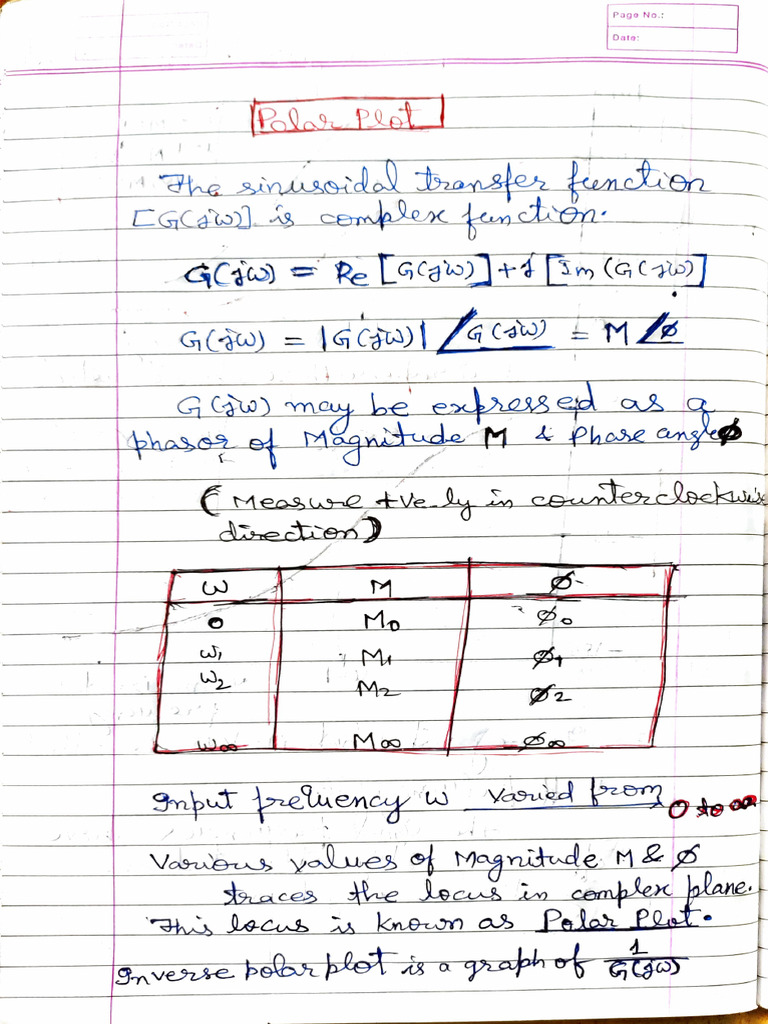 Page No.:
Date:
Polar Plot
The sinusoidal transfer function
[G(jω)] is complex function.
G(jω) = Re [G(jω)] + j [Im (G(jω)]
G(jω) = |G(jω)| ∠G(jω) = M ∠ø
G(jω) may be expressed as a
phasor of Magnitude M & Phase angle ø
(Measure +ve-ly in counterclockwise
direction)
ω M ø
0 M0 ø0
ω1 M1 ø1
ω2 M2 ø2
ω∞ M∞ ø∞
Input frequency ω varied from 0 to ∞
Various values of Magnitude M & ø
traces the locus in complex plane.
This locus is known as Polar Plot.
Inverse polar plot is a graph of 1/G(jω)